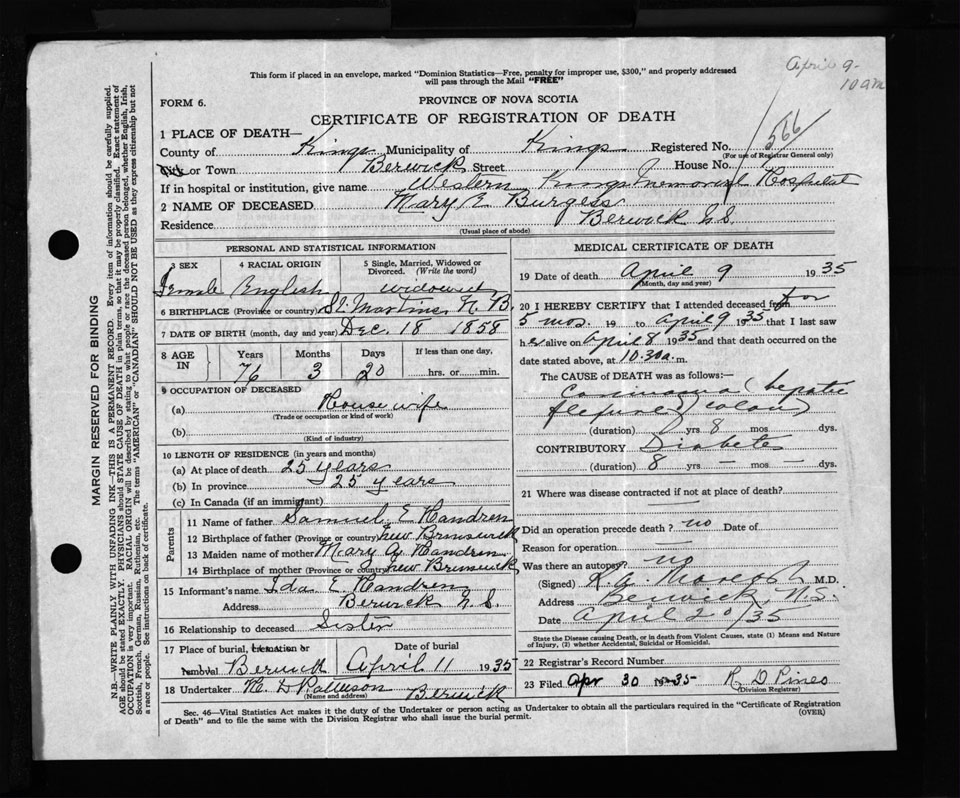 April 9-
10 am
This form if placed in an envelope, marked "Dominion Statistics—Free, penalty for improper use, $300," and properly addressed
will pass through the Mail "FREE"
FORM 6.
PROVINCE OF NOVA SCOTIA
CERTIFICATE OF REGISTRATION OF DEATH
1 PLACE OF DEATH—
County of Kings Municipality of Kings Registered No. 566
(For use of Registrar General only)
City or Town Berwick Street House No.
If in hospital or institution, give name Western Kings Memorial Hospital
2 NAME OF DECEASED Mary E Burgess
Residence Berwick N S
(Usual place of abode)
PERSONAL AND STATISTICAL INFORMATION
3 SEX 4 RACIAL ORIGIN 5 Single, Married, Widowed or Divorced. (Write the word)
Female English widowed
6 BIRTHPLACE (Province or country) St. Martins N. B.
7 DATE OF BIRTH (month, day and year) Dec. 18 1858
8 AGE IN Years Months Days If less than one day,
76 3 20 hrs. or min.
9 OCCUPATION OF DECEASED
(a) House wife
(Trade or occupation or kind of work)
(b)
(Kind of industry)
10 LENGTH OF RESIDENCE (in years and months)
(a) At place of death 25 years
(b) In province 25 years
(c) In Canada (if an immigrant)
Parents
11 Name of father Samuel E Handren
12 Birthplace of father (Province or country) new Brunswick
13 Maiden name of mother Mary Handren
14 Birthplace of mother (Province or country) new Brunswick
15 Informant's name Ida E Handren
Address Berwick N. S.
16 Relationship to deceased Sister
17 Place of burial, cremation or removal Date of burial
Berwick April 11 1935
18 Undertaker Berwick
(Name and address)
MEDICAL CERTIFICATE OF DEATH
19 Date of death April 9 1935
(Month, day and year)
20 I HEREBY CERTIFY that I attended deceased from for
5 mos. 19 to April 9 1935 that I last saw
her alive on April 8 1935 and that death occurred on the
date stated above, at 10.30 a. m.
The CAUSE OF DEATH was as follows:—
Carcinoma (hepatic
flexure) colon
(duration) yrs 8 mos dys.
CONTRIBUTORY Diabetes
(duration) 8 yrs — mos — dys.
21 Where was disease contracted if not at place of death?
Did an operation precede death? no Date of
Reason for operation —
Was there an autopsy? no
(Signed) M.D.
Address Berwick, N.S.
Date April 20/35
State the Disease causing Death, or in death from Violent Causes, state (1) Means and Nature of Injury, (2) whether Accidental, Suicidal or Homicidal.
22 Registrar's Record Number
23 Filed Apr 30 1935 R D Pineo
(Division Registrar)
Sec. 46—Vital Statistics Act makes it the duty of the Undertaker or person acting as Undertaker to obtain all the particulars required in the "Certificate of Registration
of Death" and to file the same with the Division Registrar who shall issue the burial permit.
(OVER)
MARGIN RESERVED FOR BINDING
N.B.—WRITE PLAINLY WITH UNFADING INK—THIS IS A PERMANENT RECORD. Every item of information should be carefully supplied.
AGE should be stated EXACTLY. PHYSICIANS should STATE CAUSE OF DEATH in plain terms, so that it may be properly classified. Exact statement of
OCCUPATION is very important. RACIAL ORIGIN will be described by stating to what people or race the deceased person belonged, whether English, Irish,
Scottish, French, German, Russian, Ruthenian, etc. The terms "AMERICAN" or "CANADIAN" SHOULD NOT BE USED as they express citizenship but not
a race or people. See instructions on back of certificate.